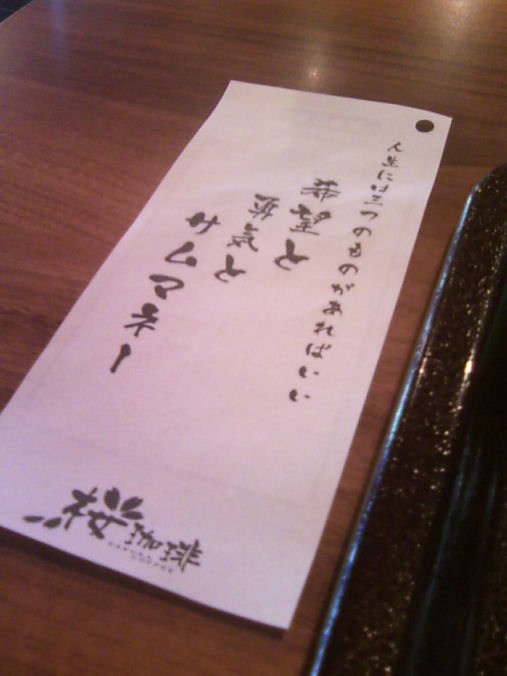 人生には三つのものがあればいい
希望と
勇気と
サムマネー
桜珈琲
SAKURA COFFEE